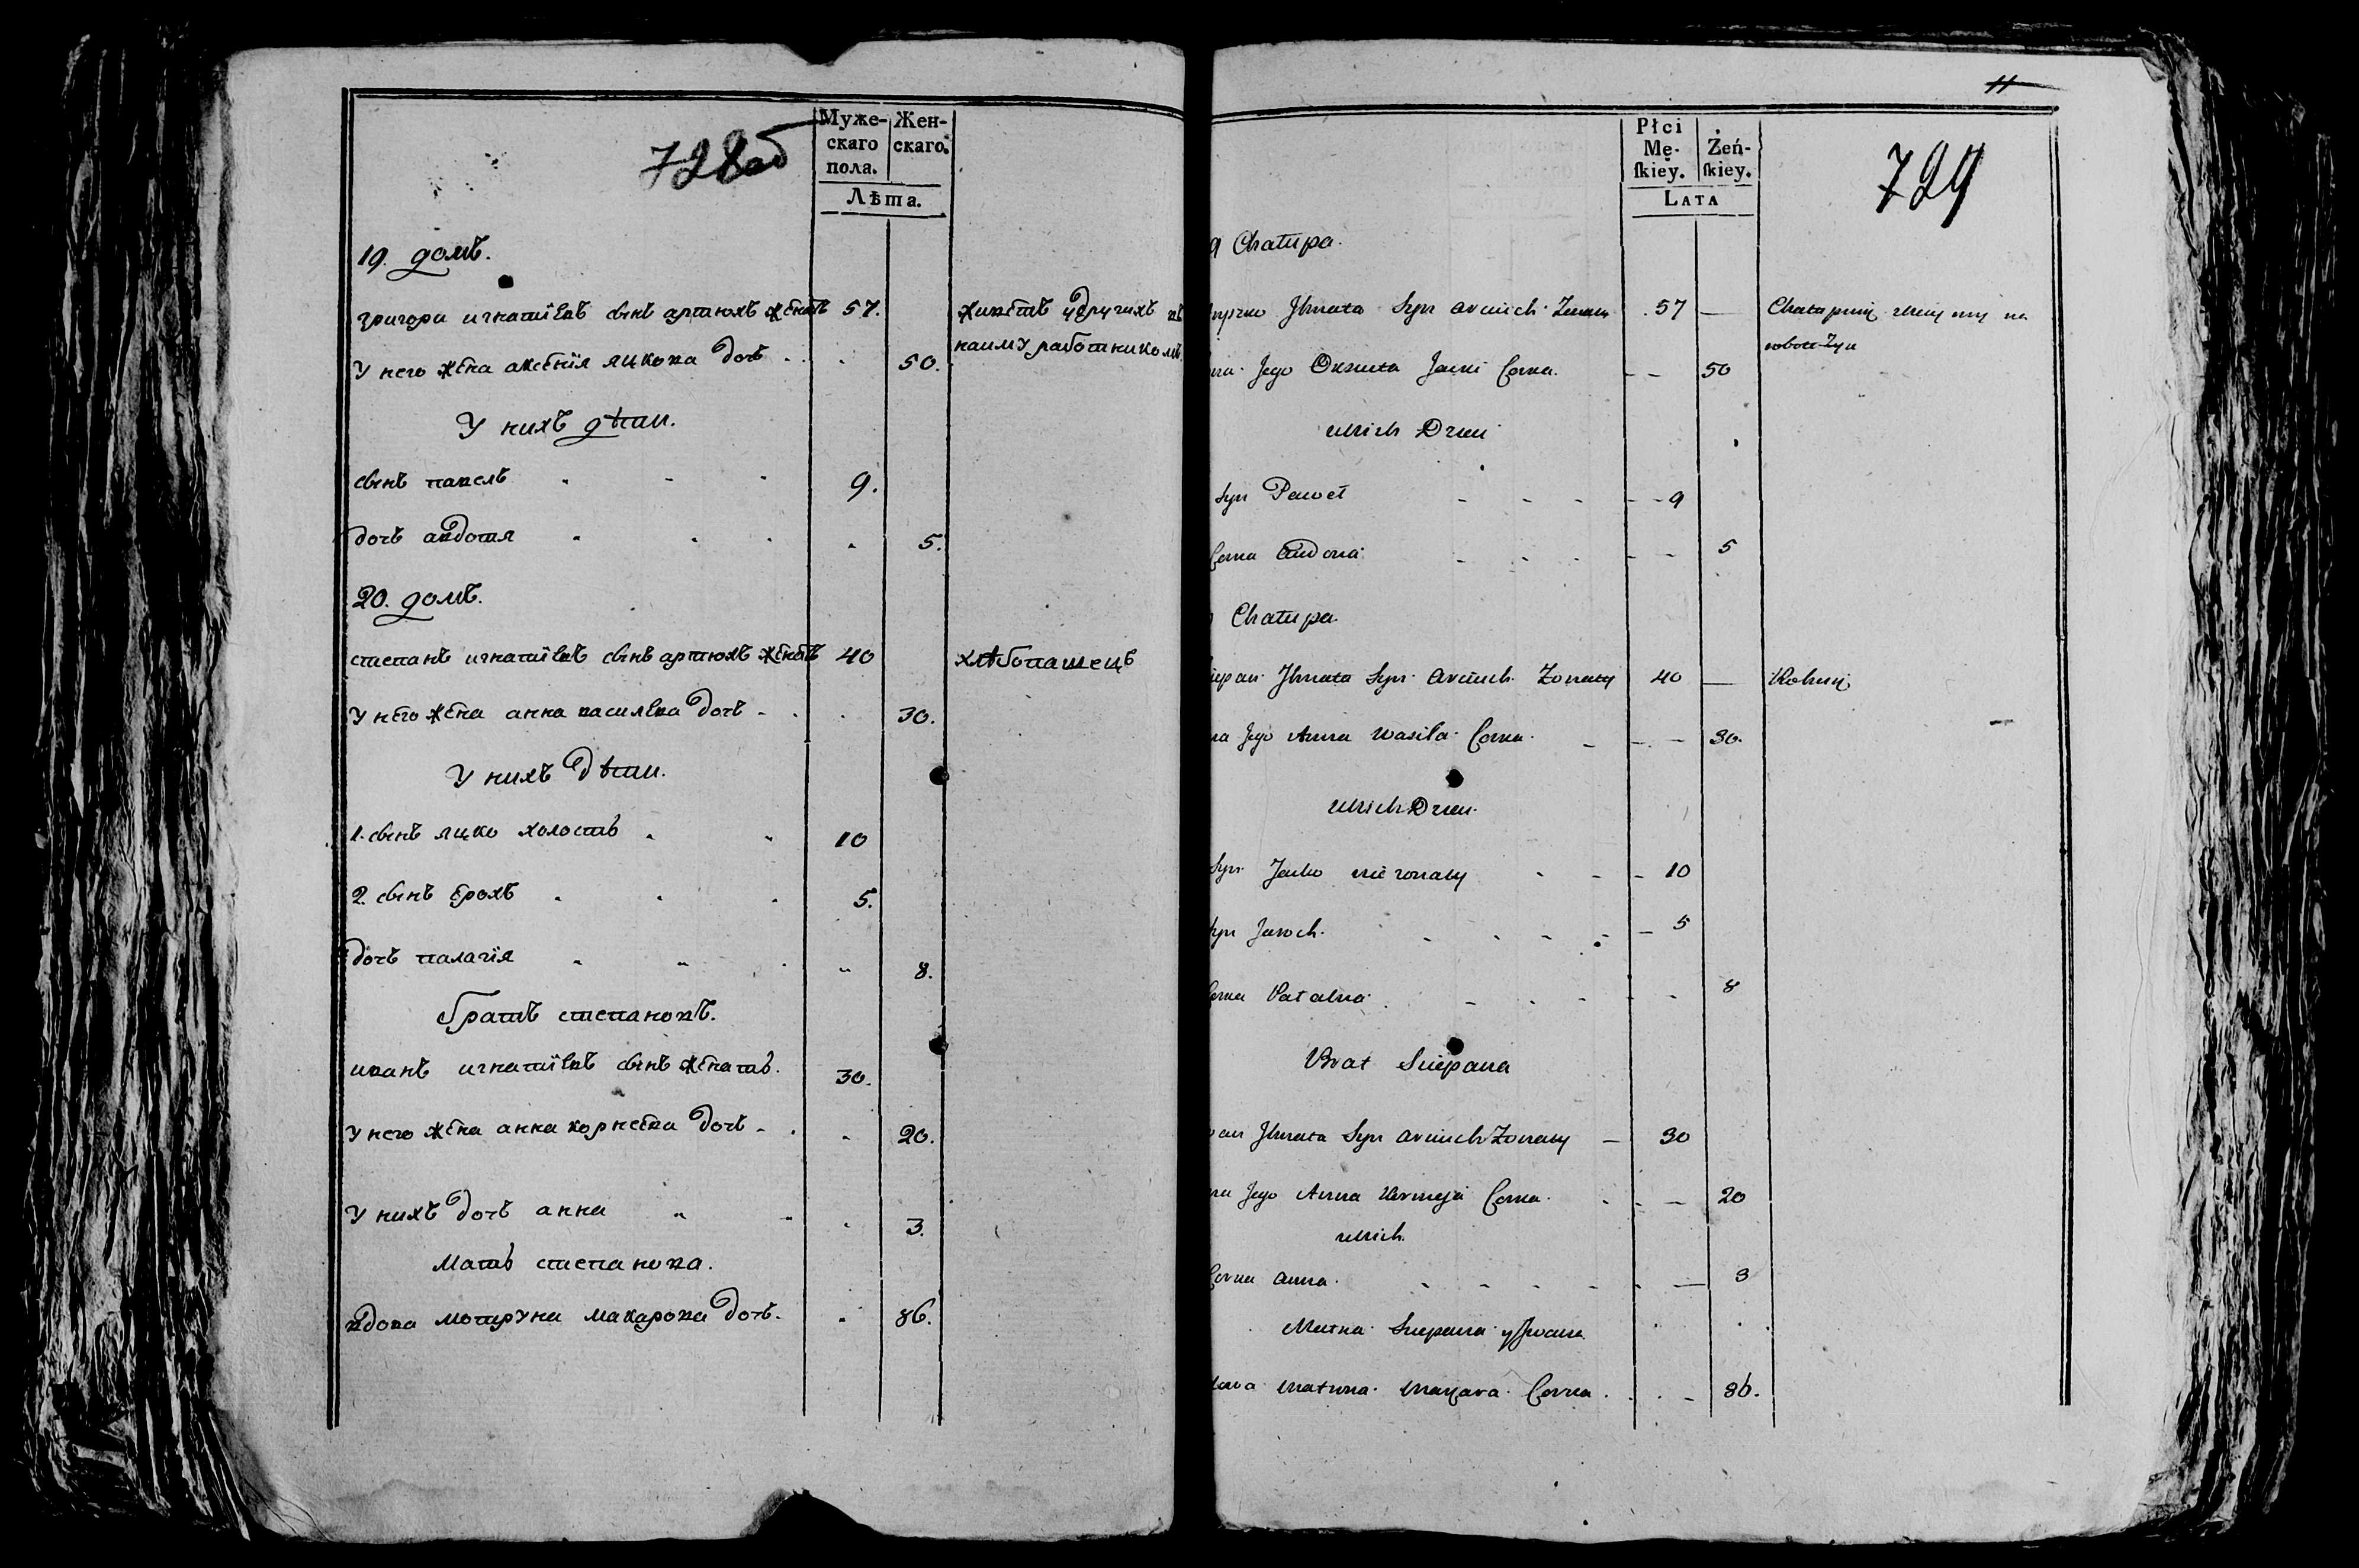 728об
Муже-
скаго
пола.
Жен-
скаго.
Лѣта.
19. домъ.
григори игнатíевъ сынъ артюхъ женатъ 57. живетъ удругихъ въ
наиму работникомъ.
У него жена аксенїя яцкова дочь 50.
У нихъ дѣти.
сынъ павелъ 9.
дочь авдотя 5.
20. домъ.
степанъ игнатíевъ сынъ артюхъ женатъ 40 хлѣбопашецъ
У него жена анна василева дочь 30.
У нихъ дѣти.
1. сынъ яцко холостъ 10
2. сынъ ерохъ 5.
дочь палагїя 8.
братъ степановъ.
иванъ игнатíевъ сынъ женатъ. 30.
У него жена анна корнеева дочь 20.
У нихъ дочь анна 3.
Мать степанова.
вдова мотруна макарова дочь. 86.
11
Płci
Mę-
ſkiey.
Żeń-
ſkiey.
LATA
729
9 Chałupa.
Jhnata Syn Arciuch Zonaty 57 Chałupnij
Jego Oxenia Jacki Corka. 50
u nich Dzieci
Syn Paweł 9
Corka Audocia 5
Chałupa.
Jhnata Syn Arciuch Zonaty 40 Rolnij
Jego Anna Wasila Corka. 30.
u nich Dzieci.
Syn Jacko nie zonaty 10
Syn Jaroch. 5
Corka Pałahia 8
Brat Sciepana
Jhnata Syn Arciuch Zonaty 30
Jego Anna Kornieja Corka. 20
u nich.
Corka Anna. 3
Matka Sciepana y Jwana
Matruna Makara Corka. 86.